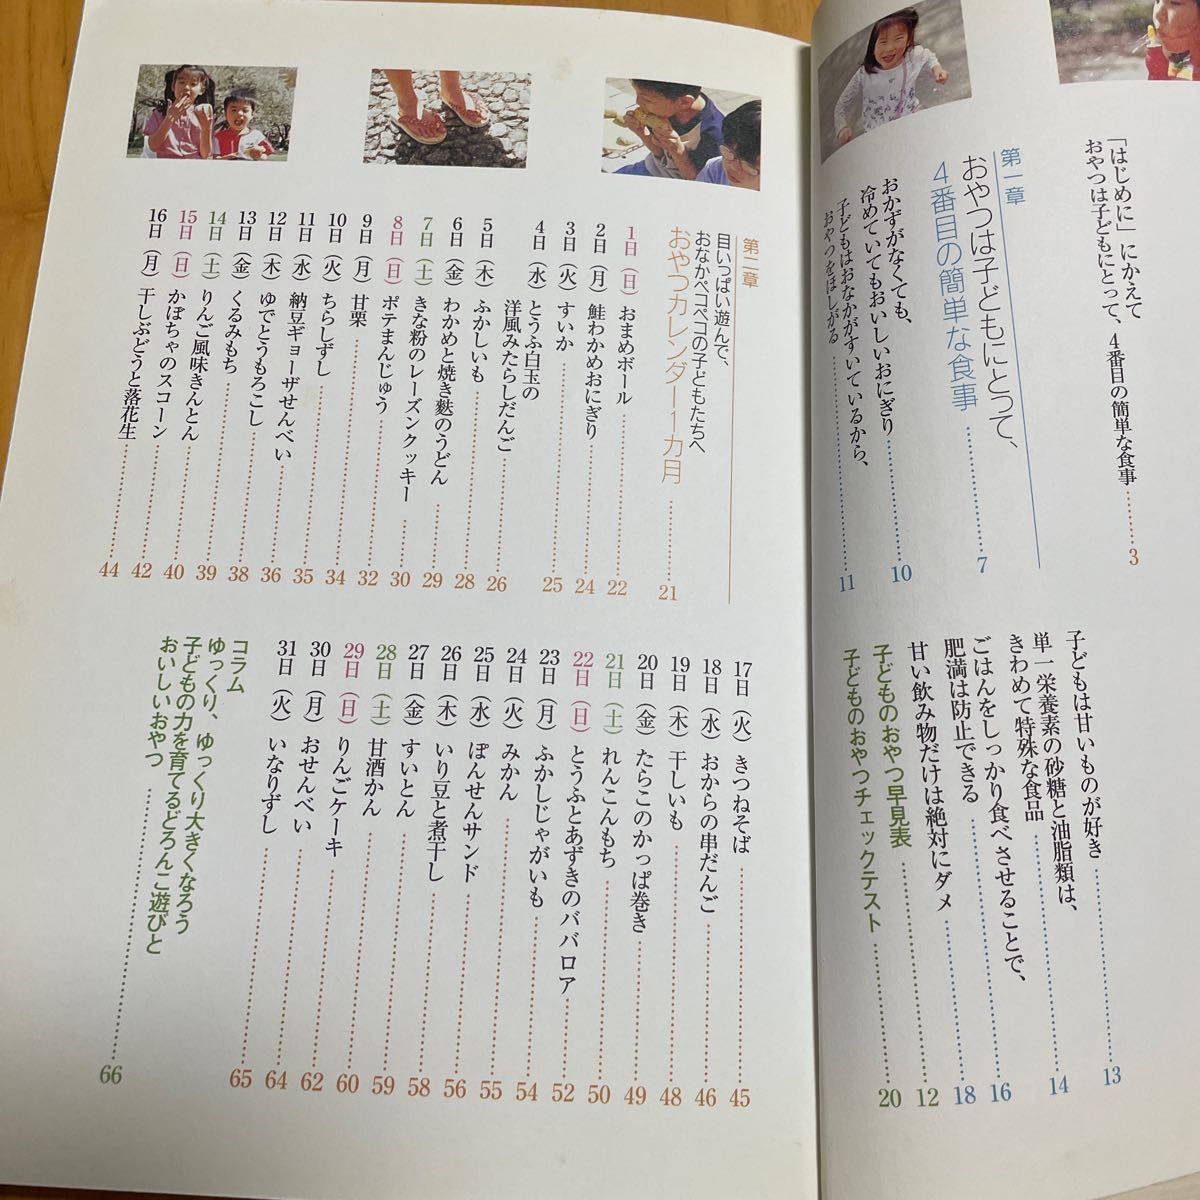 「はじめに」にかえて
おやつは子どもにとって、4番目の簡単な食事 3
第一章
おやつは子どもにとって、
4番目の簡単な食事 7
おかずがなくても、
冷めていてもおいしいおにぎり 10
子どもはおなかがすいているから、
おやつをほしがる 11
子どもは甘いものが好き 13
単一栄養素の砂糖と油脂類は、
きわめて特殊な食品 14
ごはんをしっかり食べさせることで、
肥満は防止できる 16
甘い飲み物だけは絶対にダメ 18
子どものおやつ早見表 12
子どものおやつチェックテスト 20
第二章
目いっぱい遊んで、
おなかペコペコの子どもたちへ
おやつカレンダー1カ月 21
1日(日) おまめボール 22
2日(月) 鮭わかめおにぎり 24
3日(火) すいか 25
4日(水) とうふ白玉の
洋風みたらしだんご 26
5日(木) ふかしいも 28
6日(金) わかめと焼き麩のうどん 29
7日(土) きな粉のレーズンクッキー 30
8日(日) ポテまんじゅう 32
9日(月) 甘栗 34
10日(火) ちらしずし 35
11日(水) 納豆ギョーザせんべい 36
12日(木) ゆでとうもろこし 38
13日(金) くるみもち 39
14日(土) りんご風味きんとん 40
15日(日) かぼちゃのスコーン 42
16日(月) 干しぶどうと落花生 44
17日(火) きつねそば 45
18日(水) おからの串だんご 46
19日(木) 干しいも 48
20日(金) たらこのかっぱ巻き 49
21日(土) れんこんもち 50
22日(日) とうふとあずきのババロア 52
23日(月) ふかしじゃがいも 54
24日(火) みかん 55
25日(水) ぽんせんサンド 56
26日(木) いり豆と煮干し 58
27日(金) すいとん 59
28日(土) 甘酒かん 60
29日(日) りんごケーキ 62
30日(月) おせんべい 64
31日(火) いなりずし 65
コラム
ゆっくり、ゆっくり大きくなろう
子どもの力を育てるどろんこ遊びと
おいしいおやつ 66